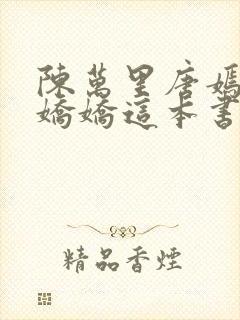 陳萬里唐嫣
嬌嬌這本書
精品香煙